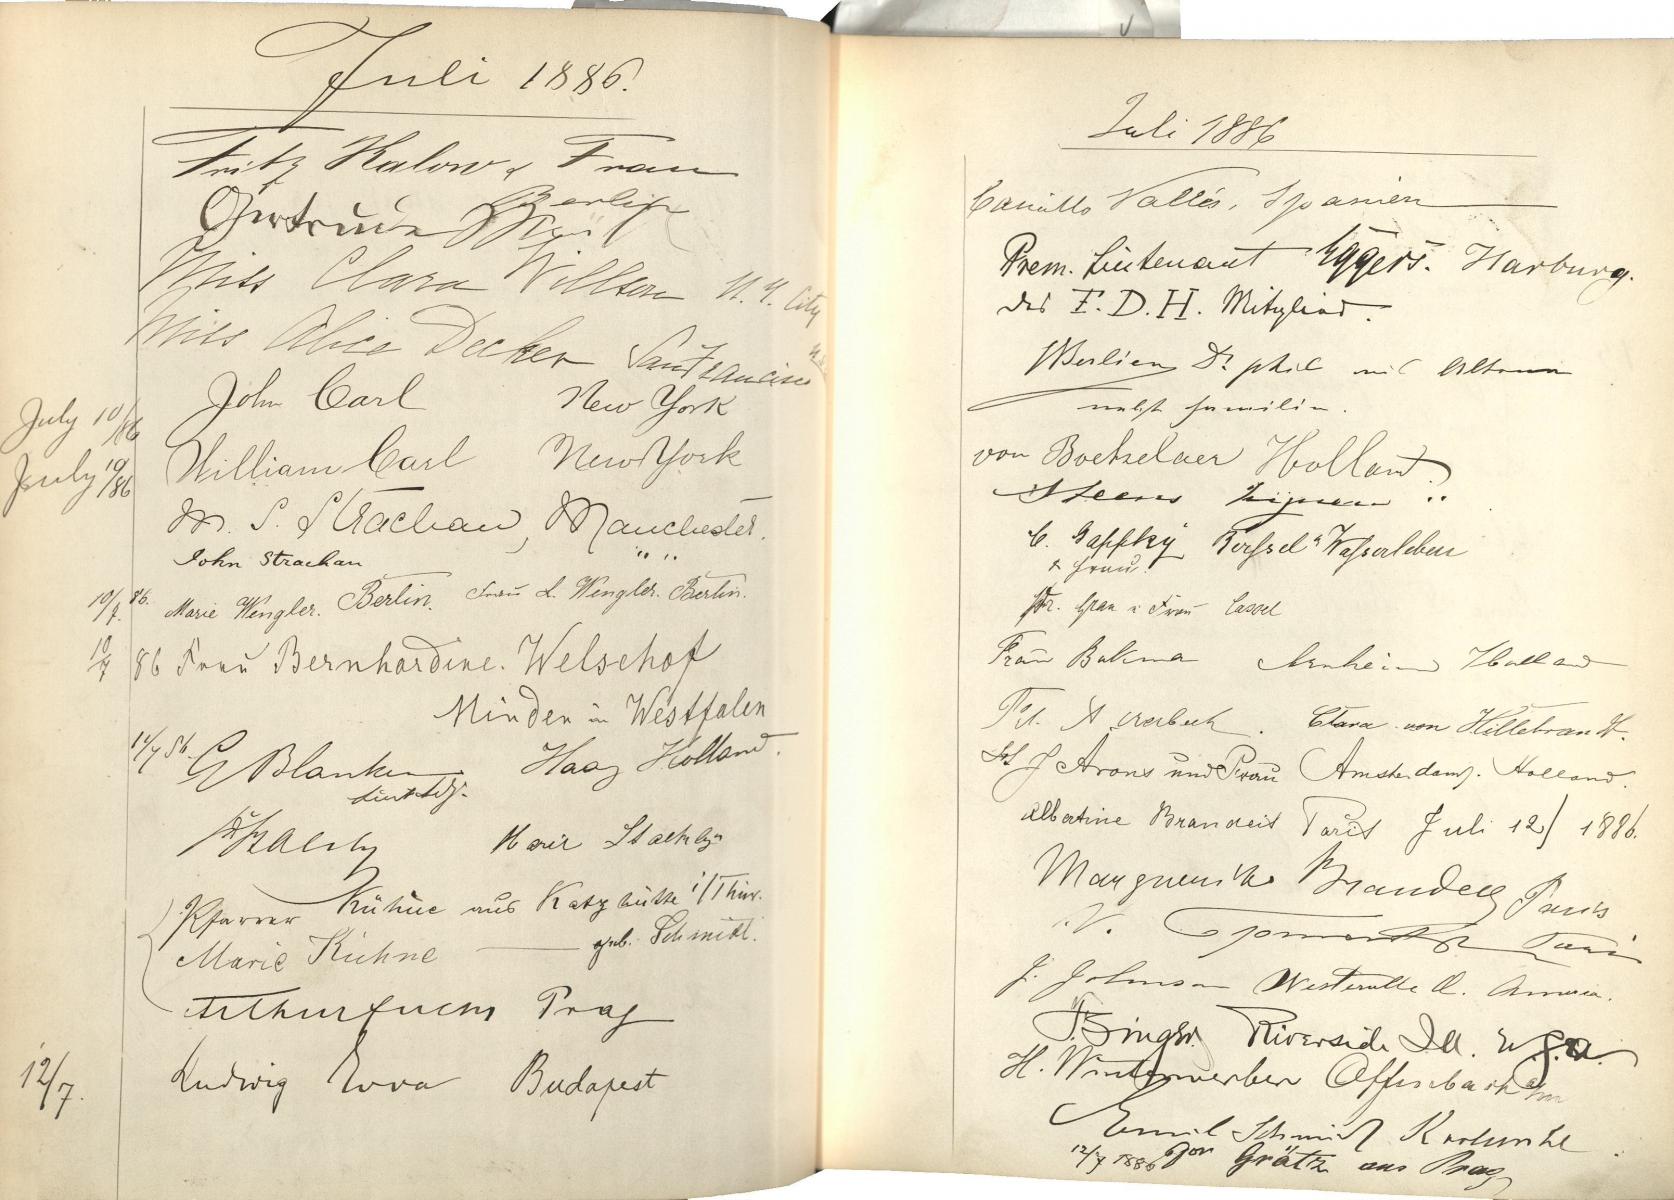 Juli 1886.
Fritz Kalow & Frau
Berlin
Gertrude
Miss Clara Willson N.Y. City
Miss Alice Decker San Francisco
July 10/86 John Carl New York
July 10/86 William Carl New York
M. S. Strachan, Manchester.
John Strachan " "
10/7. 86. Marie Wengler. Berlin. Frau L. Wengler. Berlin.
10/7 86 Frau Bernhardine. Welschof
Minden in Westfalen
11/7 86. G Blanken Haag Holland.
Marie Staehely
Pfarrer Kühne aus Katzhütte i/Thür.
Marie Kühne — geb. Schmidt.
Arthur Fuchs Prag
12/7. Ludwig Ewva Budapest
Juli 1886
Camillo Vallés, Spanien
Prem. Lieutenant Eggers. Harburg.
des F. D. H. Mitglied.
Dr phil aus Altona
nebst Familie.
von Boetzelaer Holland.
"
C. Gaffky
& Frau.
Dr. Grau u Frau Cassel
Frau Bakma Arnheim Holland
Clara von Hillebrandt.
J Arons und Frau Amsterdam. Holland.
Albertine Brandeis Paris Juli 12/ 1886.
Marguerite Brandeis Paris
Paris
J. Johnson Westerville O. America.
F. Binger. Riverside Ill. U.S.A.
H. Winterwerber Offenbach am
Emil Schmidt Karlsruhe
12/7 1886 von Grätz aus Prag